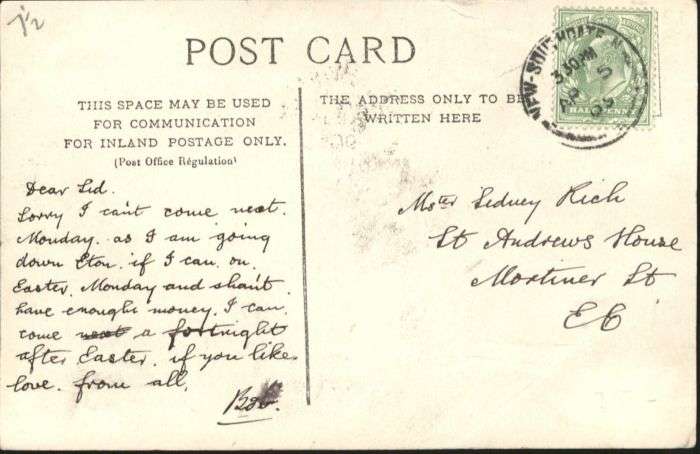 1'2
POST CARD
THIS SPACE MAY BE USED
FOR COMMUNICATION
FOR INLAND POSTAGE ONLY.
(Post Office Régulation)
Dear Sid.
Sorry I can't come next.
Monday. as I am going
down Eton. if I can. on.
Easter. Monday and shan't
have enought money. I can.
come next a fortnight
after Easter. if you like
love. from all.
Bob.
THE ADDRESS ONLY TO BE
WRITTEN HERE
NEW-SOUTHGATE N
3.30PM
AP 5
09
HALFPENNY
Mster Sidney Rich
St Andrews House
Mortimer St
E C